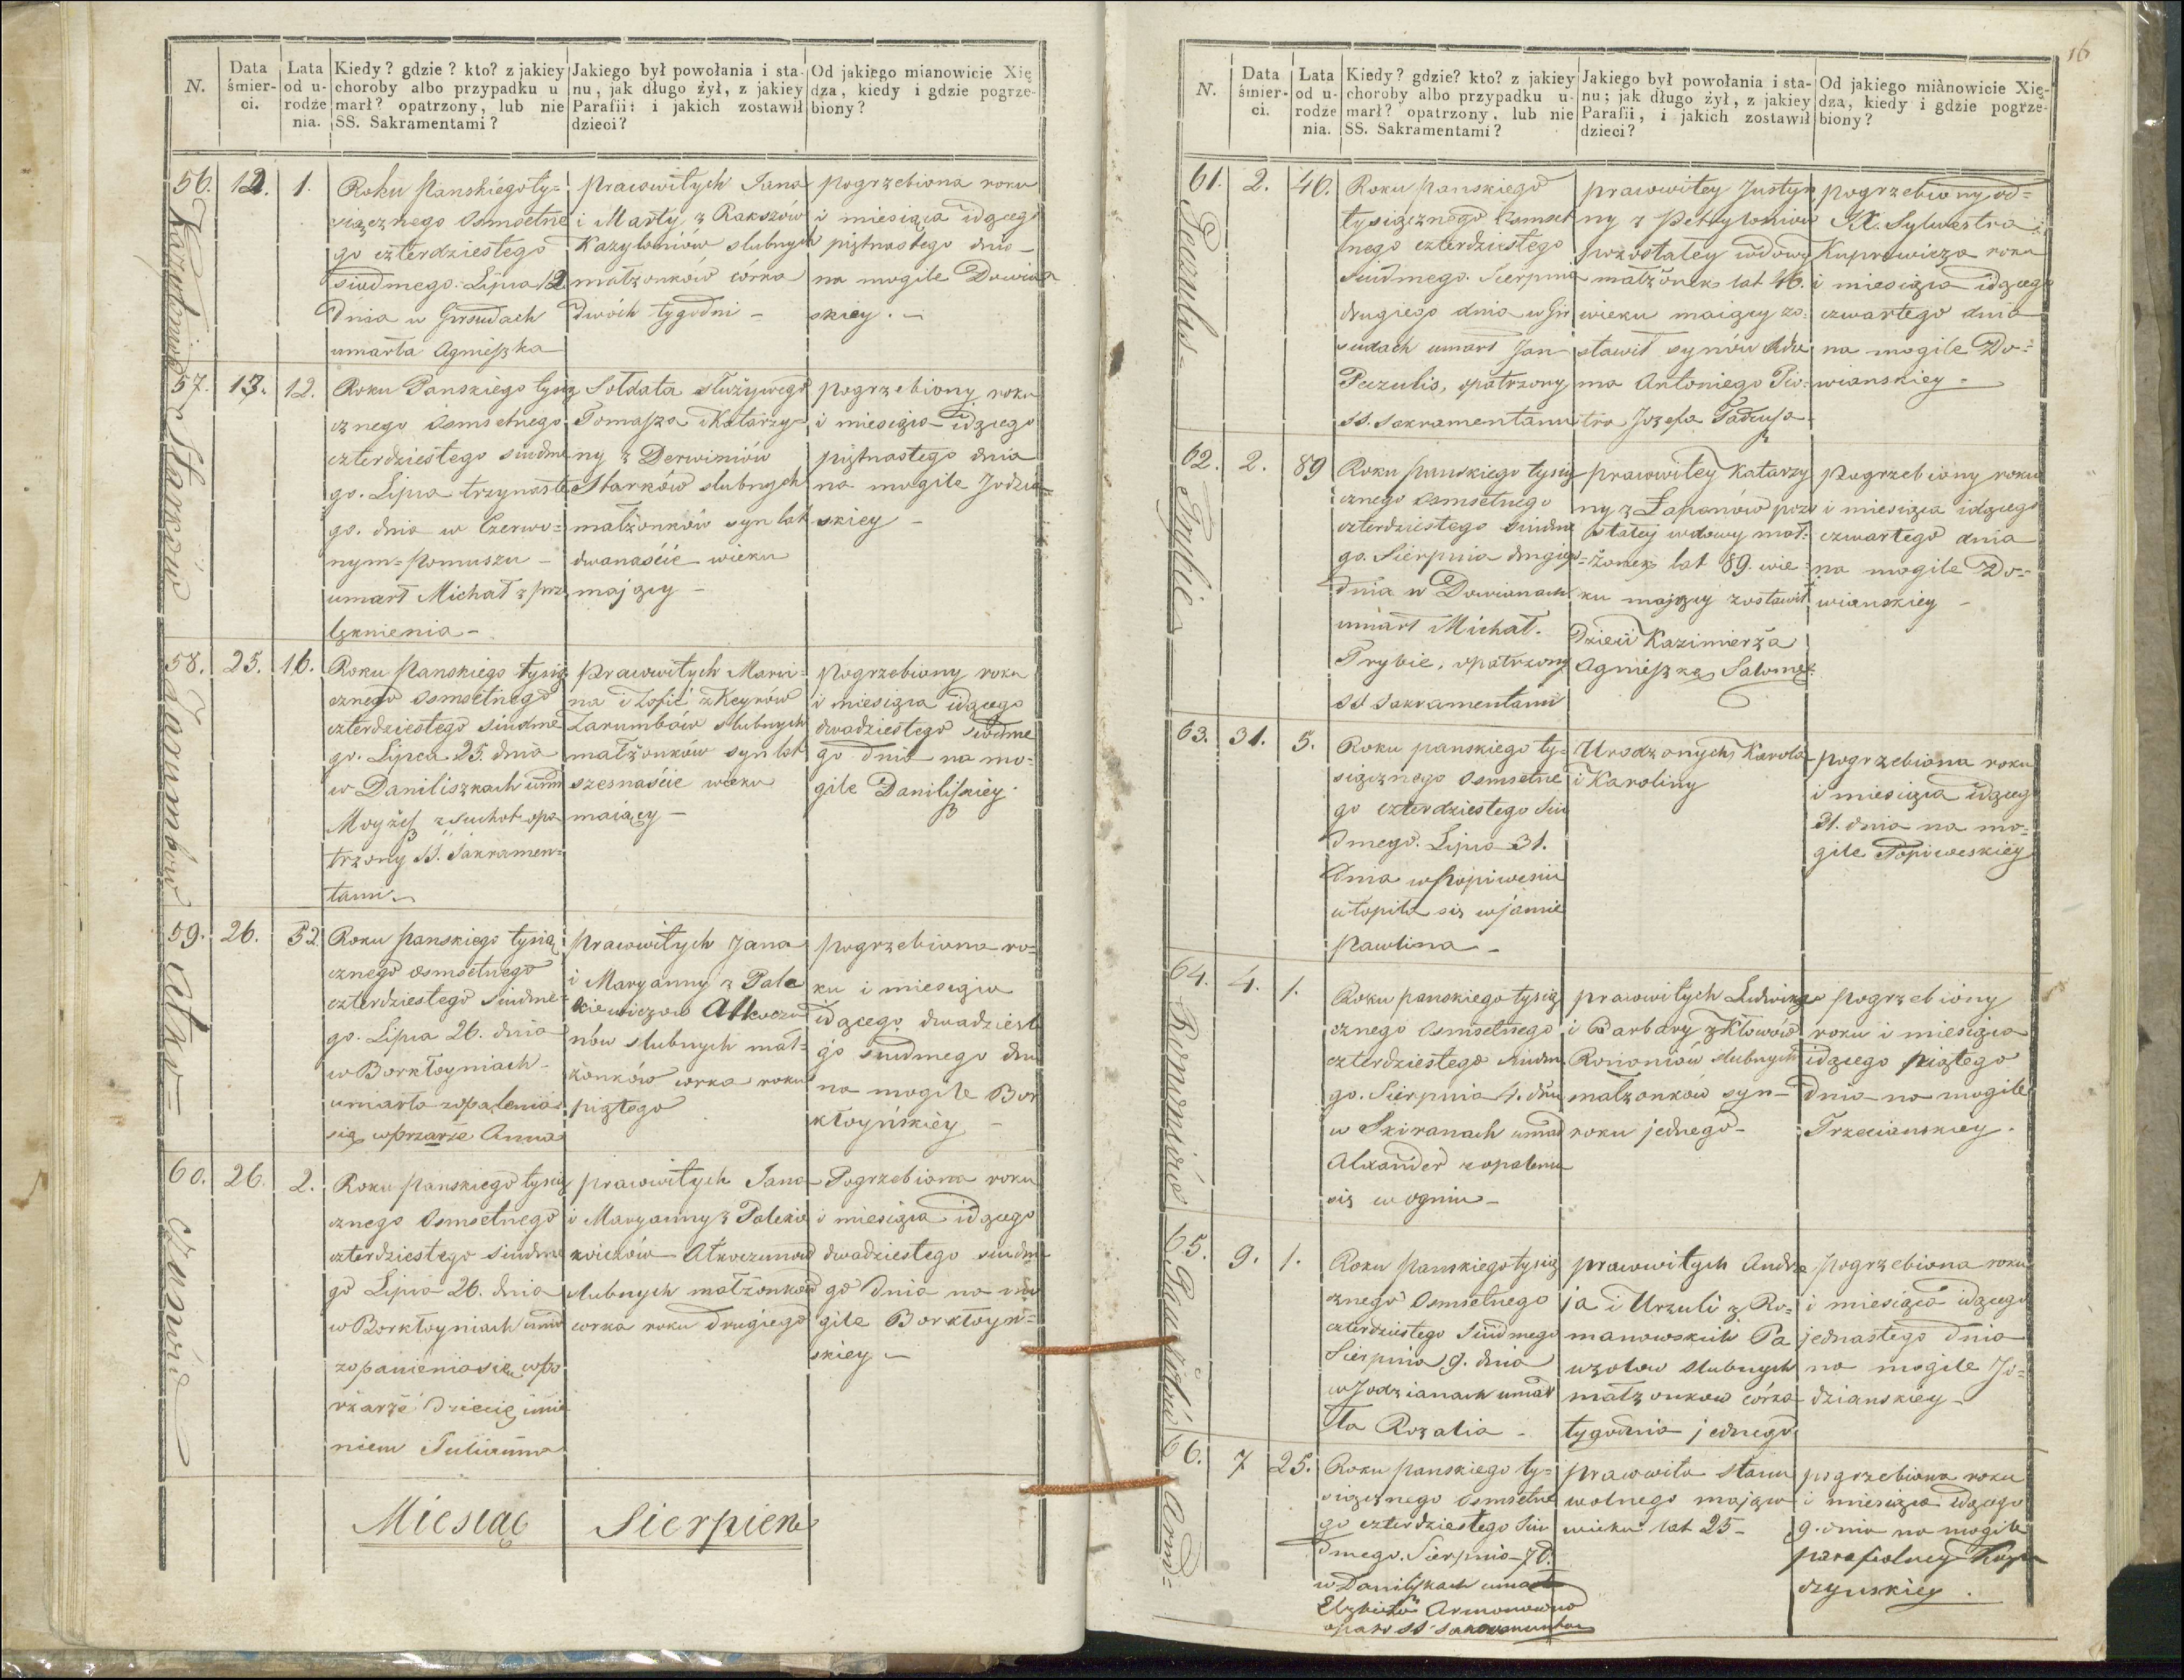 N.
Data śmier-
ci.
Lata
od u-
rodze
nia.
Kiedy? gdzie? kto? z jakiey
choroby albo przypadku u
marł? opatrzony, lub nie
SS. Sakramentami?
Jakiego był powołania i sta-
nu, jak długo żył, z jakiey
Parafii: i jakich zostawił
dzieci?
Od jakiego mianowicie Xię
dza, kiedy i gdzie pogrze-
biony?
56.
12.
1.
Roku Panskiego ty=
siącznego Osmsetne
go czterdziestego
siudmego Lipca 12
dnia w Girsudach
umarła Agnieszka
prawowitych Jana
i Marty z Rakszów
Kazyloniów slubnych
małżonków córka
dwóch tygodni -
pogrzebiona roku
i miesiąca idącego
piętnastego dnia -
na mogile Dowian
skiey. -
57.
13.
12.
Roku Panskiego tysią
cznego Osmsetnego
czterdziestego siudme
go. Lipca trzynaste
go. dnia w Czerwo=
nym=Pomuszu -
umarł Michał z prze
lęknienia -
Sołdata służącego
Tomasza i Katarzy=
ny z Derwiniów
Starków slubnych
małżonków syn lat
dwanaście wieku
mający -
pogrzebiony roku
i miesiąca idącego
piętnastego dnia
na mogile Jodzia
skiey -
Starków
58.
25.
16.
Roku Panskiego tysią
cznego Osmsetnego
czterdziestego siudme
go. Lipca 25. dnia
w Daniliszkach um
Moyżesz z suchot opa
trzony SS. Sakramen=
tami -
prawowitych Marci=
na i Zofii z Keyrów
Zarumbów slubnych
małżonków syn lat
szesnaście wieku
maiący -
Pogrzebiony roku
i miesiąca idącego
dwadziestego siudme
go dnia na mo=
gile Daniliskiey.
Zarumbów
59.
26.
52.
Roku Panskiego tysią
cznego osmsetnego
czterdziestego siudme=
go. Lipca 26. dnia
w Borkłoyniach -
umarła zopalenia
się w przarze Anna
prawowitych Jana
i Maryanny z Pale
kiewiczow Atkoczu
nów slubnych mał=
żonków corka roku
piątego
pogrzebiona ro=
ku i miesiąca
idącego dwadzieste
go siudmego dnia
na mogile Bor
kłoyńskiey -
Atko=
60.
26.
2.
Roku Panskiego tysią
cznego Osmsetnego
czterdziestego siudme
go Lipca 26. dnia
w Borkłoyniach uma
zopanienia się w po
rżarże dziecię imie
niem Julianna
prawowitych Jana
i Maryanny z Palekie
wiczów Atkoczunow
slubnych małżonkow
corka roku drugiego
Pogrzebiona roku
i miesiąca idącego
dwadziestego siudme
go dnia na mo
gile Borkłoyn=
skiey -
czunów
Miesiąc Sierpien
16
N.
Data
śmier-
ci.
Lata
od u-
rodze
nia.
Kiedy? gdzie? kto? z jakiey
choroby albo przypadku u-
marł? opatrzony, lub nie
SS. Sakramentami?
Jakiego był powołania i sta-
nu; jak długo żył, z jakiey
Parafii, i jakich zostawił
dzieci?
Od jakiego miànowicie Xię-
dza, kiedy i gdzie pogrze-
biony?
61.
2.
46.
Roku panskiego
tysiącznego Osmset
nego czterdziestego
siudmego. Sierpnia
drugiego dnia w Gir
sudach umarł Jan
Peczulis, opatrzony
SS. Sakramentami
prawowitey Justyn
ny z Petryloniow
pozostałey wdowy
małżonek lat 46.
wieku maiący zo=
stawił synów Ada
ma Antoniego Pio=
tra Jozefa Tadeusza
pogrzebiony od=
JX. Sylwestra
Kuprewicza roku
i miesiąca idącego
czwartego dnia
na mogile Do=
wianskiey -
Peczulis -
62.
2.
89
Roku panskiego tysią
cznego Osmsetnego
czterdziestego siudme
go. Sierpnia drugiego
dnia w Dowianach
umarł Michał.
Trybie, opatrzony
SS Sakramentami
prawowitey Katarzy
ny z Łapanów pozo
stałey wdowy mał=
żonek lat 89. wie
ku mający zostawił
dzieci Kazimierza
Agnieszkę Salomeę.
Pogrzebiony roku
i miesiąca idącego
czwartego dnia
na mogile Do=
wianskiey -
Trybie
63.
31.
5.
Roku panskiego ty=
siącznego Osmsetne
go czterdziestego Siu
dmego. Lipca 31.
dnia w Popiwesiu
utopiła się w jamie
Pawlina -
Urodzonych Karola
i Karoliny
pogrzebiona roku
i miesiąca idącego
31. dnia na mo=
gile Popiweskiey
64.
4.
1.
Roku panskiego tysią
cznego Osmsetnego
czterdziestego siudme
go. Sierpnia 4. dnia
w Skiranach umarł
Alexander z opalenia
się w ogniu -
prawowitych Ludwika
i Barbary z Kłowów
Romaniów slubnych
małzonkow syn -
roku jednego -
pogrzebiony
roku i miesiąca
idącego piątego
dnia na mogile
Trzecianskiey.
65.
9.
1.
Roku Panskiego tysią
cznego Osmsetnego
czterdziestego Siudmego
Sierpnia 9. dnia
w Jodzianach umar
ła Rozalia -
prawowitych Andrze
ja i Urzuli z Ro=
manowskich Pa
uzolow slubnych
małzonkow córka
tygodnia jednego.
pogrzebiona roku
i miesiąca idącego
jednastego dnia
na mogile Jo=
dzianskiey -
66.
7
25.
Roku panskiego ty=
siącznego Osmsetne
go czterdziestego Siu
dmego. Sierpnia 7 d.
w Daniliszkach umarła
Elzbieta Armonowna
opatr SS Sakramentami
prawowita stanu
wolnego mająca
wieku lat 25 -
pogrzebiona roku
i miesiąca idącego
9. dnia na mogile
parafialney
Arm=